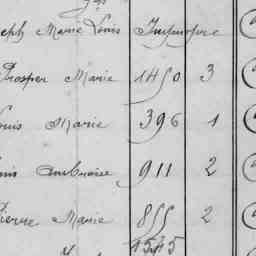 seph Marie Louis
Prosper Marie 1450 3
Louis Marie 396 1
ouis Ambroise 911 2
Pierre Marie 855 2
1545